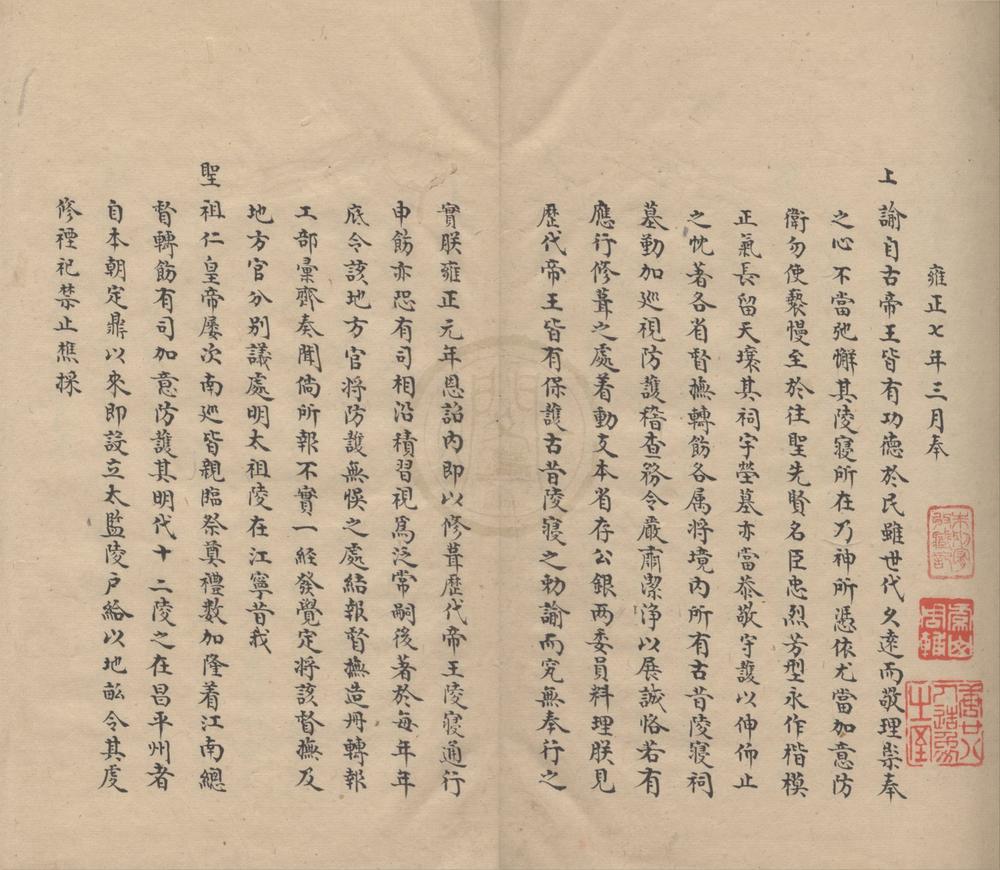 雍正七年三月奉
上諭自古帝王皆有功德於民雖世代久遠而敬理崇奉
之心不當弛懈其陵寢所在乃神所憑依尤當加意防
衛勿使褻慢至於往聖先賢名臣忠烈芳型永作楷模
正氣長留天壤其祠宇塋墓亦當恭敬守護以伸仰止
之忱著各省督撫轉飭各属將境內所有古昔陵寢祠
墓勤加巡視防護稽查務令嚴肅潔淨以展誠恪若有
應行修葺之處着動支本省存公銀两委員料理朕見
歷代帝王皆有保護古昔陵寢之勅諭而究無奉行之
實朕雍正元年恩詔內即以修葺歷代帝王陵寢通行
申飭亦恐有司相沿積習視爲泛常嗣後著於每年年
底令該地方官將防護無悞之處結報督撫造冊轉報
工部彙齊奏聞倘所報不實一經發覺定將該督撫及
地方官分別議處明太祖陵在江寧昔我
聖祖仁皇帝屡次南巡皆親臨祭奠禮數加隆着江南總
督轉飭有司加意防護其明代十二陵之在昌平州者
自本朝定鼎以來即設立太監陵户給以地畝令其虔
修禋祀禁止樵採